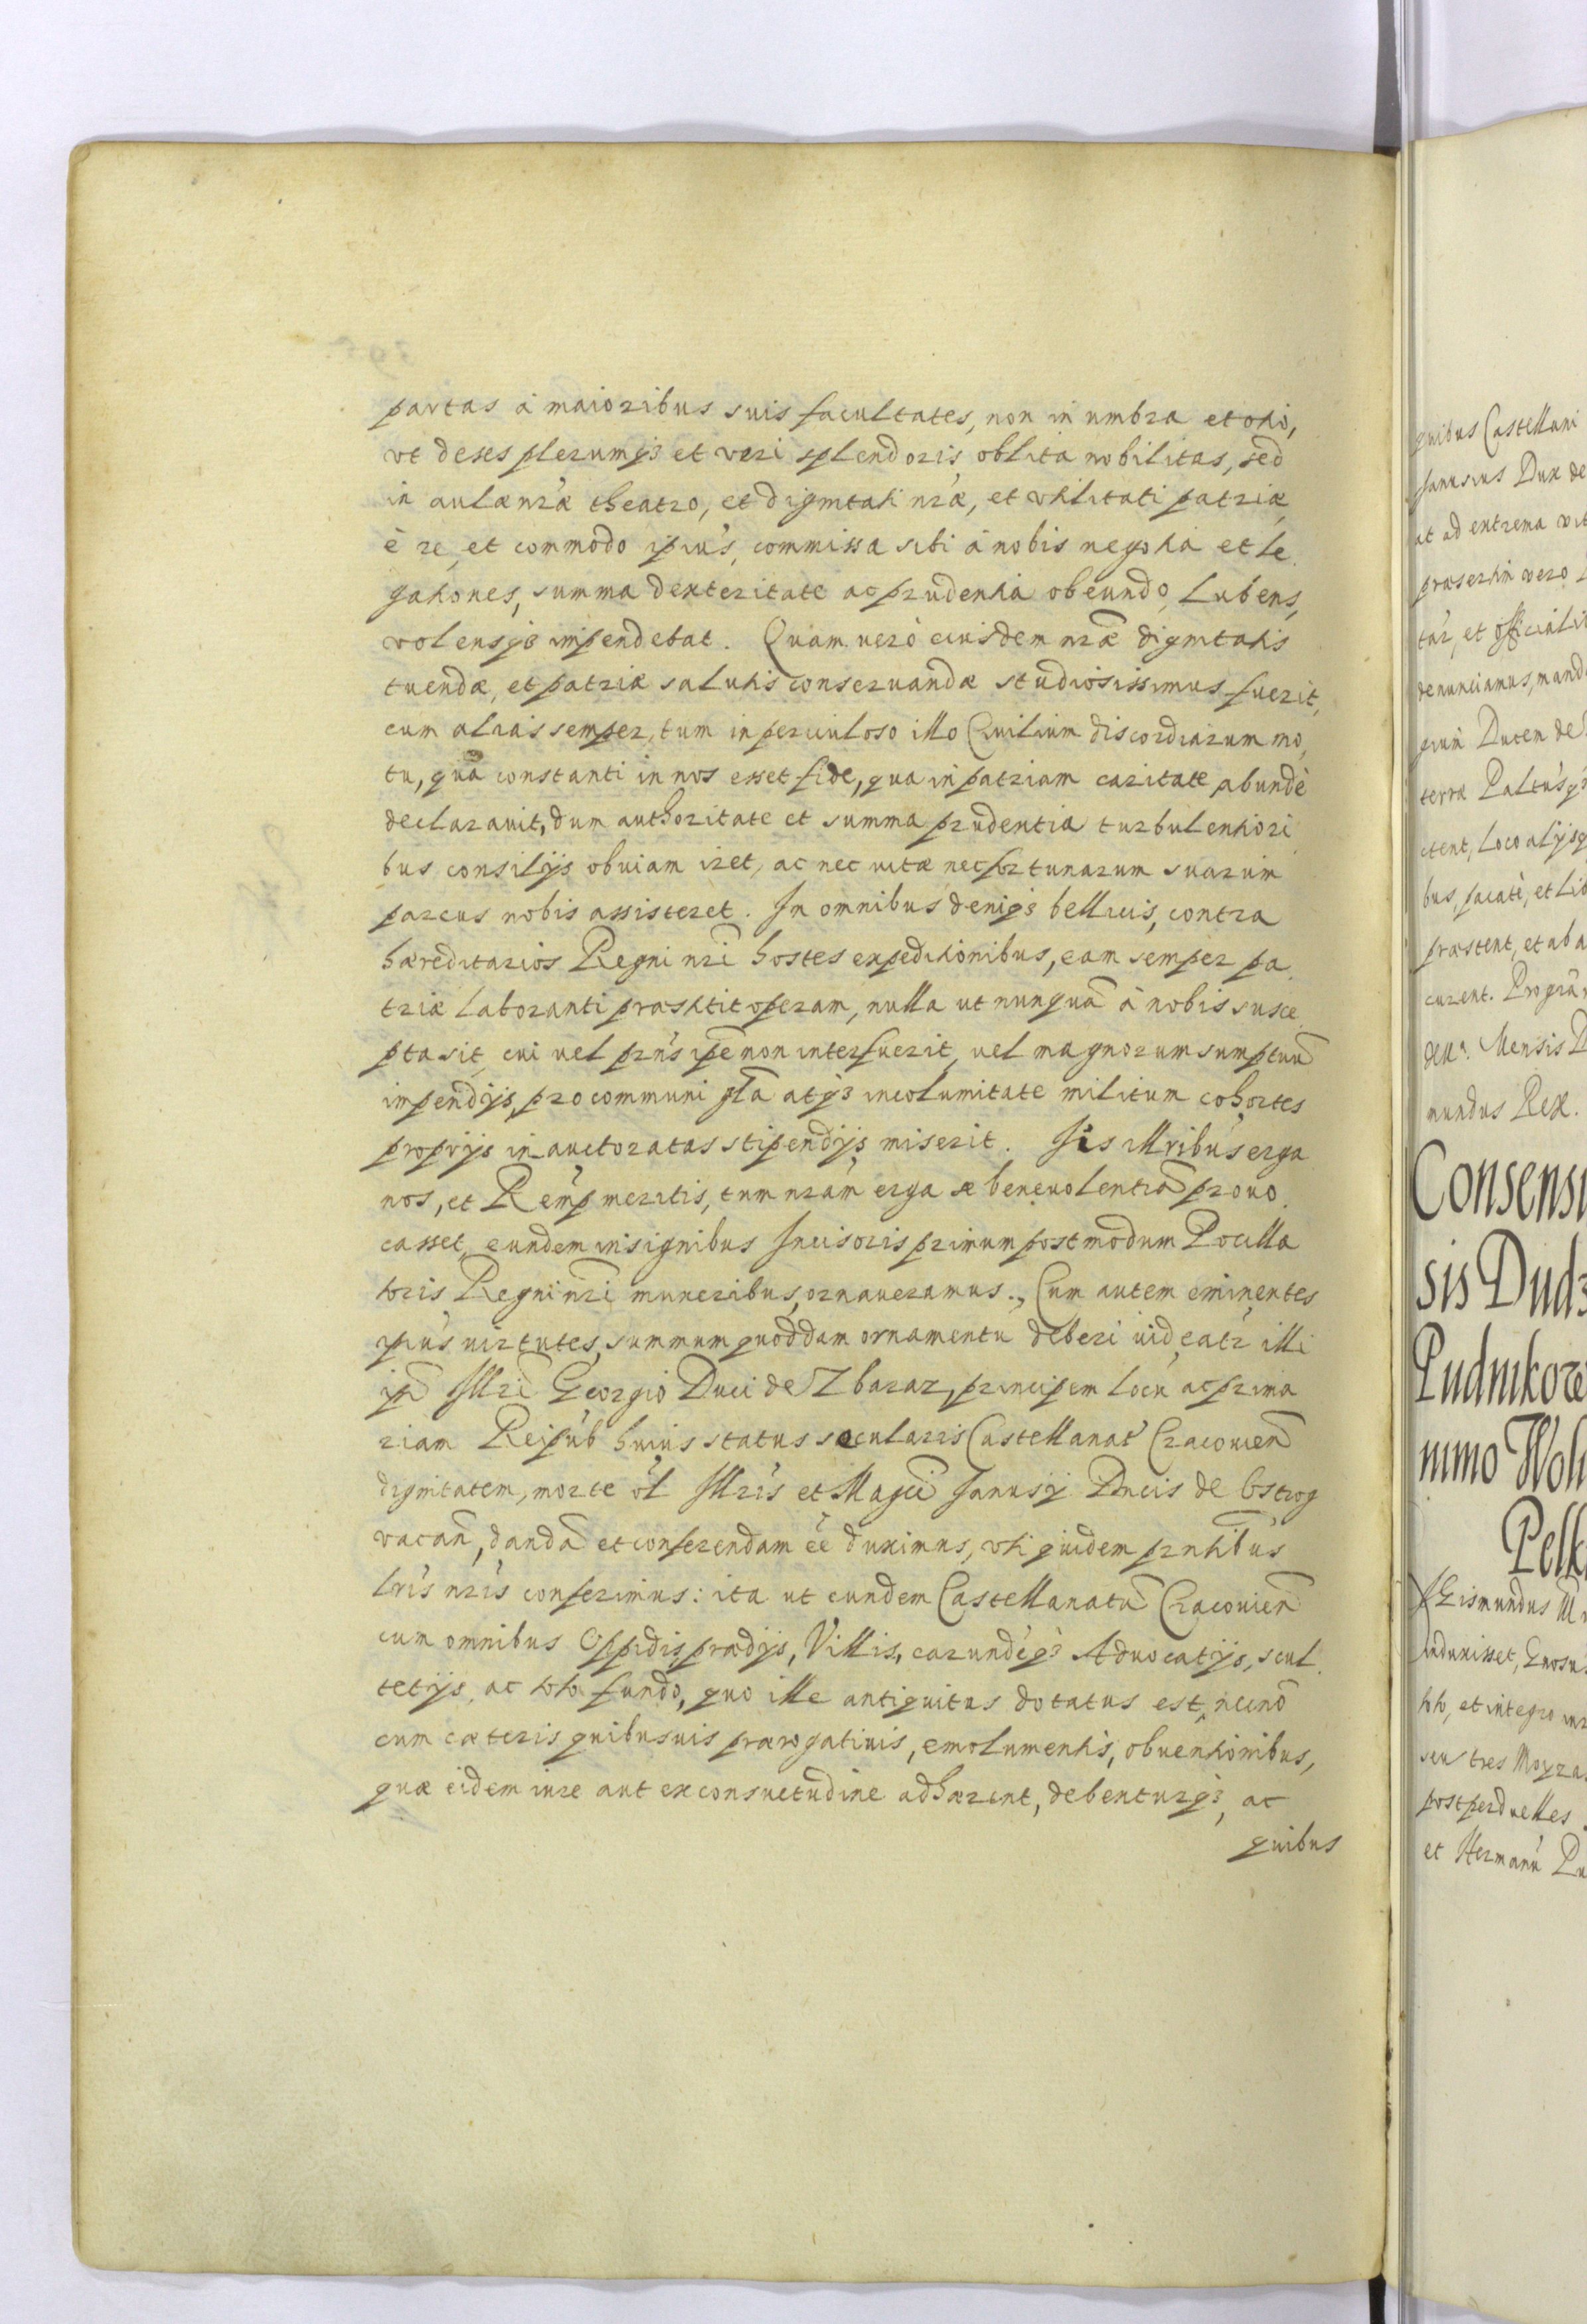 partas à maioribus suis facultates, non in umbra et otio,
vt deses plerumq3 et veri splendoris oblita nobilitas, sed
in aulæ nr̃æ theatro, et dignitati nr̃æ, et vtilitati patriæ
è re, et commodo ipius, commissa sibi à nobis negotia et le
gationes, summa dexteritate ac prudentia obeundo, lubens,
volensq3 impendebat. Quam verò eiusdem nr̃æ dignitatis
tuendæ, et patriæ salutis conseruandæ studiosissimus fuerit,
cum aliàs semper, tum in periculoso illo Ciuilium discordiarum mo
tu, quã constanti in nos esset fide, qua in patriam caritate abundè
declarauit, dum authoritate et summa prudentia turbulentiori
bus consilijs obuiam iret, ac nec vitæ nec fortunarum suarum
parcus nobis assisteret. In omnibus deniq3 bellicis, contra
hæreditarios Regni nr̃i hostes expeditionibus, eam semper pa
triæ laboranti præstitit operam, nulla ut nunquã à nobis susce
pta sit, cui vel prñs ip̃e non interfuerit, vel magnorum sumptuũ
impendijs, pro communi gl̃a atq3 incolumitate militum cohortes
proprijs in auctoratas stipendijs miserit. His illribus erga
nos, et Remp meritis, tum nrãm erga se beneuolentiã prouo
casset, eundem insignibus Incisoris primum postmodum Pocilla
toris Regni nr̃i muneribus, ornaueramus. Cum autem eminentes
ipius virtutes, summum quoddam ornamentũ deberi videatr illi
ip̃i Illri Georgio Duci de Zbaraz, principem locũ ac prima
riam Reipub huius status sæcularis Castellanat Cracouieñ
dignitatem, morte ol Illris et Magci Janusij Ducis de Ostrog
vacañ, dandã et conferendam eẽ duximus, vti quidem prñtibus
lr̃is nr̃is conferimus: ita ut eundem Castellanatũ Cracouieñ
cum omnibus Oppidis, prædijs, Villis, earundeq3 Aduocatijs, scul
tetijs, ac toto fundo, quo ille antiquitus dotatus est, necnõ
cum cæteris quibusuis prærogatiuis, emolumentis, obuentionibus,
quæ eidem iure aut ex consuetudine adhærent, debenturq3, ac
quibus
quibus Castellani
Janusius Dux de
at ad extrema vit
præsertim vero
tar, et officialib
denunciamus, mand
gium Ducem de
terræ Paltusq3
ctent, loco alijsq
bus, pacatè, et lib
præstent, et ab a
curent.
Mensis D
mundus Rex.
Consensu
sis Dud
Rudnikore
nimo Woh
Pelk
Sigismundus
induxisset,
toto, et integro
seu tres
post perduelles
et Hermanũ